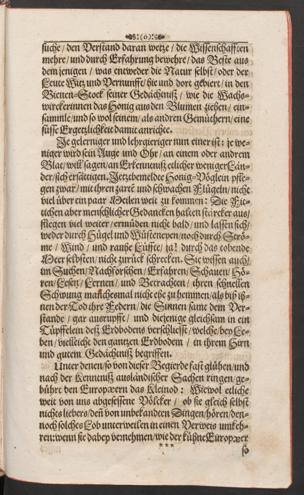 suche / den Verstand daran wetze / die Wissenschafften
mehre / und durch Erfahrung bewehre / das Beste aus
dem jenigen / was entweder die Natur selbst / oder der
Leute Witz und Vernunfft / hie und dort gebiert / in den
Bienen-Stock seiner Gedächtnuß / wie die Wachs-
wirckerinnen das Honig aus den Blumen ziehen / ein-
sammle / und so wol seinem / als andren Gemüthern / eine
süsse Ergetzlichkeit damit anrichte.
Je gelerniger und lehrgieriger nun einer ist: je we-
niger wird sein Auge und Ohr / an einem oder andrem
Blat / will sagen / an Erkenntniß etlicher weniger Län-
der / sich ersättigen. Jetztbemeldte Honig-Vöglein pfle-
gen zwar / mit ihren zarten und schwachen Flügeln / nicht
viel über ein paar Meilen weit zu kommen: Die Fit-
tichen aber menschlicher Gedancken halten stärcker aus /
fliegen viel weiter / ermüden nicht bald / und lassen sich /
weder durch Hügel und Wüsteneyen / noch durch Strö-
me / Wind / und rauhe Lüffte / ja! durch das tobende
Meer selbsten / nicht zurück schrecken. Sie wissen auch /
im Suchen / Nachforschen / Erfahren / Schauen / Hö-
ren / Lesen / Lernen / und Betrachten / ihren schnellen
Schwung manchesmal nicht ehe zu hemmen / als biß ih-
nen der Tod ihre Federn / die Sinnen samt dem Ver-
stande / gar ausrupfft / und diejenige gleichsam in ein
Tüpffelein deß Erdbodens verschliesst / welche / bey Le-
ben / vielleicht den gantzen Erdbodem / in ihrem Hirn
und gutem Gedächtniß begriffen.
Unter denen / so von dieser Begierde fast glühen / und
nach der Kenntniß ausländischer Sachen ringen / ge-
bührt den Europæern das Kleinod: Wiewol etliche
weit von uns abgesessene Völcker / ob sie gleich selbst
nichts liebers / denn von unbekandten Dingen / hören / den-
noch solches Lob unterweilen in einen Verweis umkeh-
ren: wenn sie dabey vernehmen / wie der kühne Europæer
* * *
so